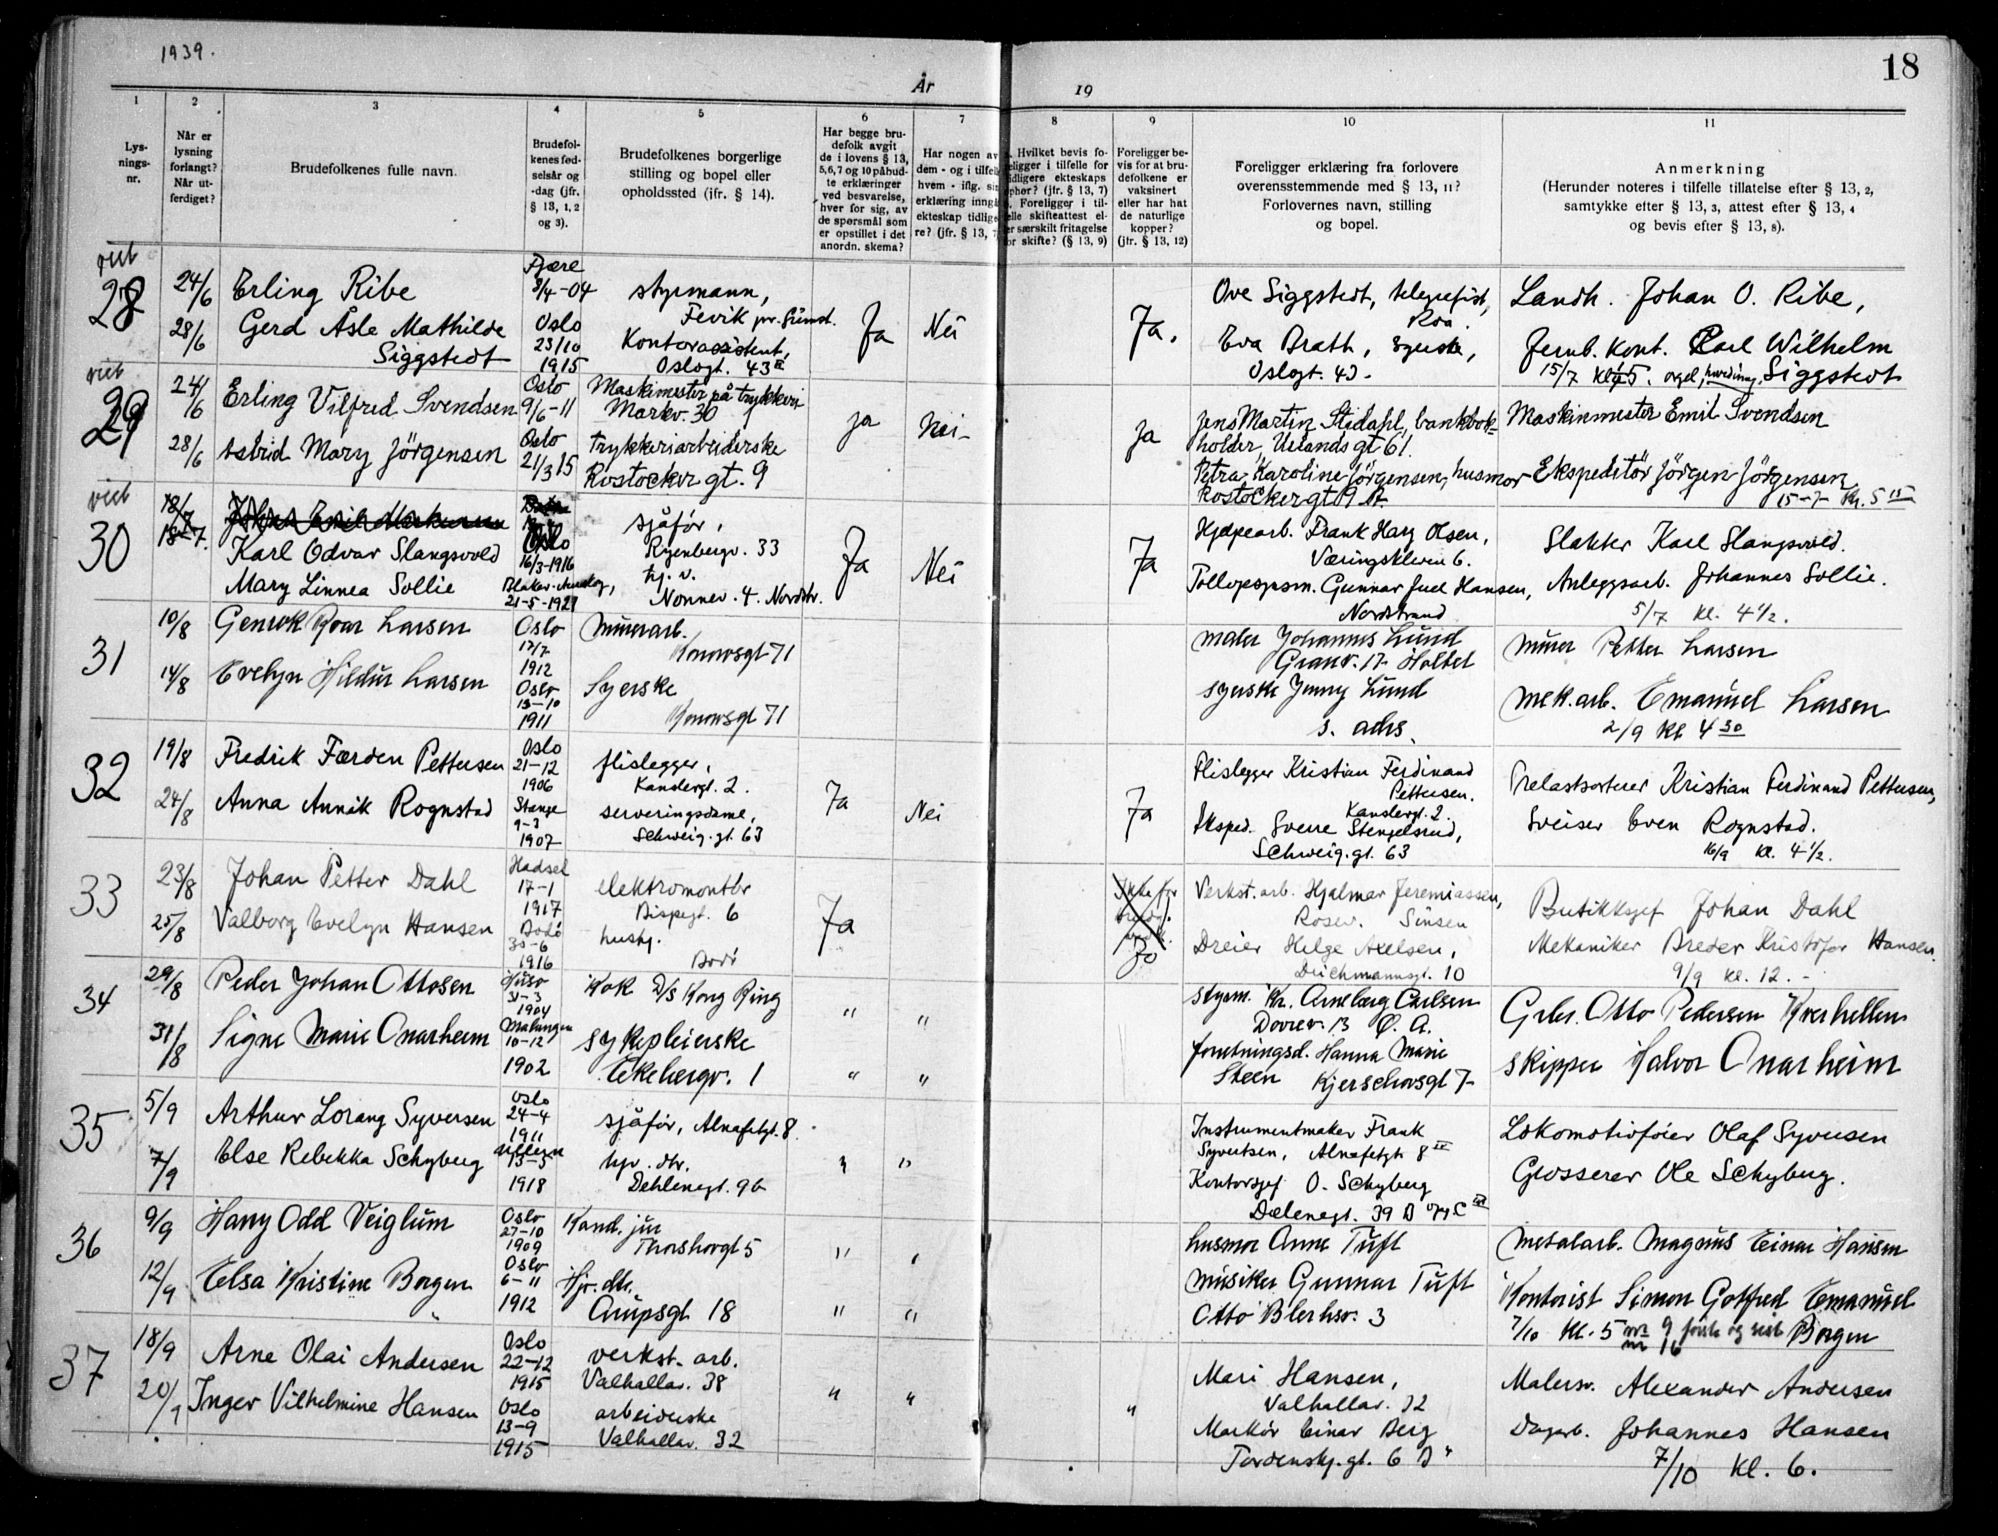 1939.
18
År
19
1
2
3
4
5
6
7
8
9
10
11
Lys-
nings-
nr.
Når er
lysning
forlangt?
Når ut-
ferdiget?
Brudefolkenes fulle navn.
Brudefol-
kenes fød-
selsår og
-dag (jfr.
§ 13, 1, 2
og 3).
Brudefolkenes borgerlige
stilling og bopel eller
opholdssted (jfr. § 14).
Har begge bru-
defolk avgit
de i lovens § 13,
5, 6, 7 og 10 påbud-
te erklæringer
ved besvarelse,
hver for sig, av
de spørsmål som
er opstillet i det
anordn. skema?
Har nogen av
dem - og i tilfelle
hvem - iflg. sin
erklæring inngå
ekteskap tidlige-
re? (jfr. § 13, 7
Hvilket bevis fo-
religger i tilfelle for
tidligere ekteskaps
ophør? (jfr. § 13, 7)
Foreligger i til-
felle skifteattest el-
er særskilt fritagelse
for skifte? (§ 13, 9)
Foreligger be-
vis for at bru-
defolkene er
vaksinert
eller har hat
de naturlige
kopper?
(jfr. § 13, 12)
Foreligger erklæring fra forlovere
overensstemmende med § 13, 11?
Forlovernes navn, stilling
og bopel.
Anmerkning
(Herunder noteres i tilfelle tillatelse efter § 13, 2,
samtykke efter § 13, 3, attest efter § 13, 4
og bevis efter § 13, 8).
viet
28
24/6
28/6
Erling Ribe
Gerd Åsle Mathilde
Siggstedt
Fjære
3/4-04
Oslo
23/10
1915
styrmann,
Fevik pr. Grimst.
Kontorassistent,
Oslogt. 43 II
Ja
Nei
Ja.
Ove Siggstedt, telegrafist,
Roa.
Eva Brath, syerske,
Oslogt. 43.
Landh. Johan O. Ribe,
Jernb. Kont. Carl Wilhelm
15/7 kl 5. orgel, Siggstedt
viet
29
24/6
28/6
Erling Vilfred Svendsen
Astrid Mary Jörgensen
Oslo
9/6-11
Oslo
21/3 15
Maskimester på trykkeri
Markv. 30
trykkeriarbeiderske
Rostocker gt. 9
Ja
Nei
Ja
Jens Martin Stedahl, bankbok-
holder, Uelands gt 61.
Petra Karoline Jörgensen, husmor
Rostocker gt 9 A.
Maskinmester Emil Svendsen
Ekspeditör Jörgen Jörgensen
15-7- Kl. 5 15
viet
30
18/7
18-7.
Karl Odvar Slangsvold
Mary Linnea Sollie
Oslo
16/3-1916
21-5-1921
sjåfør,
Ryenbergv. 33
hj. v.
Nonnev. 4. Nordstr.
Ja
Nei
Ja
Hjelpearb. Frank Harry Olsen,
Væringskleiva 6.
Tolloppsynsm. Gunnar Juel Hansen,
Nordstrand
Slakter Karl Slangsvold.
Anleggsarb. Johannes Sollie.
5/7 kl. 4 1/2.
31
10/8
14/8
Roar Larsen
Evelyn Hildur Larsen
Oslo
17/7
1912
Oslo
13-10
1911
Murerarb.
Konowsgt 71
Syerske
Konowsgt 71
Maler Johannes Lund
Granv. 17 Holtet
syerske Jenny Lund
s. adrs.
Murer Petter Larsen
Mek. arb. Emanuel Larsen
2/9 kl 4 30
32
19/8
24/8
Fredrik Færden Pettersen
Anna Annik Rognstad
Oslo
21-12
1906
Stange
9-3
1907
flislegger,
Kanslergt. 2.
serveringsdame,
Schweig. gt. 63
Ja
Nei
Ja
Flislegger Kristian Ferdinand
Pettersen.
Kanslergt. 2.
Eksped. Sverre Stengelsrud,
Schweig. gt. 63
Trelastsorterer Kristian Ferdinand Pettersen,
Sveiser Even Rognstad.
16/9 kl. 4 1/2.
33
23/8
25/8
Johan Petter Dahl
Valborg Evelyn Hansen
Hadsel
17-1
1917
Bodö
30-6
1916
elektromontör
Bispegt. 6
hushj.
Bodö
Ja
Ikke for
Ja
Verkst. arb. Hjalmar Jeremiassen,
Rosev. Sinsen
Dreier Helge Axelsen,
Deichmannsgt. 10
Butikksjef Johan Dahl
Mekaniker Breder Kristofer Hansen.
9/9 kl. 12. -
34
29/8
31/8
Peder Johan Ottosen
Signe Marie Onarheim
31-3
1904
Malangen
10-12
1902
Kok D/s Kong Ring
sykepleierske
Ekebergv. 1
"
"
"
"
styrm. Kr. Arneberg Carlsen
Dovrev. 13 Ö. A.
forretningsd. Hanna Marie
Steen Kjerschowsgt 7
Grbr. Otto Pedersen Kverhellen
skipper Halvor Onarheim
35
5/9
7/9
Arthur Lorang Syversen
Else Rebekka Schyberg
Oslo
24-4
1911
Ullern
13-5
1918
sjåfør, Alnafetgt. 8.
hjv. dtr.
Dehlenegt. 9b
"
"
Instrumentmaker Frank
Syvertsen, Alnafetgt 8 III
Kontorsjef O. Schyberg
Dælenegt. 39 B opg C III
Lokomotivfører Olaf Syversen
Grosserer Ole Schyberg.
36
9/9
12/9
Harry Odd Veiglum
Elsa Kristine Borgen
Oslo
27-10
1909
Oslo
6-11
1912
Kand. jur
Thorshovgt 5
Hjv. dtr.
Arupsgt 18
"
"
"
"
husmor Anne Tuft
musiker Gunnar Tuft
Otto Blehrsv. 3
Metalarb. Magnus Einar Hansen
Kontorist Simon Gotfred Emanuel
7/10 kl. 5 nr 9 først og sist Borgen
nr 16
37
18/9
20/9
Arne Olai Andersen
Inger Vilhelmine Hansen
Oslo
22-12
1915
Oslo
13-9
1915
verkst. arb.
Valhallav. 38
arbeiderske
Valhallav. 32
"
"
"
Mari Hansen,
Valhallav. 32
Markör Einar Berg
Tordenskj. gt. 6 B
Malersv. Alexander Andersen
Dagarb. Johannes Hansen
7/10 kl. 6.